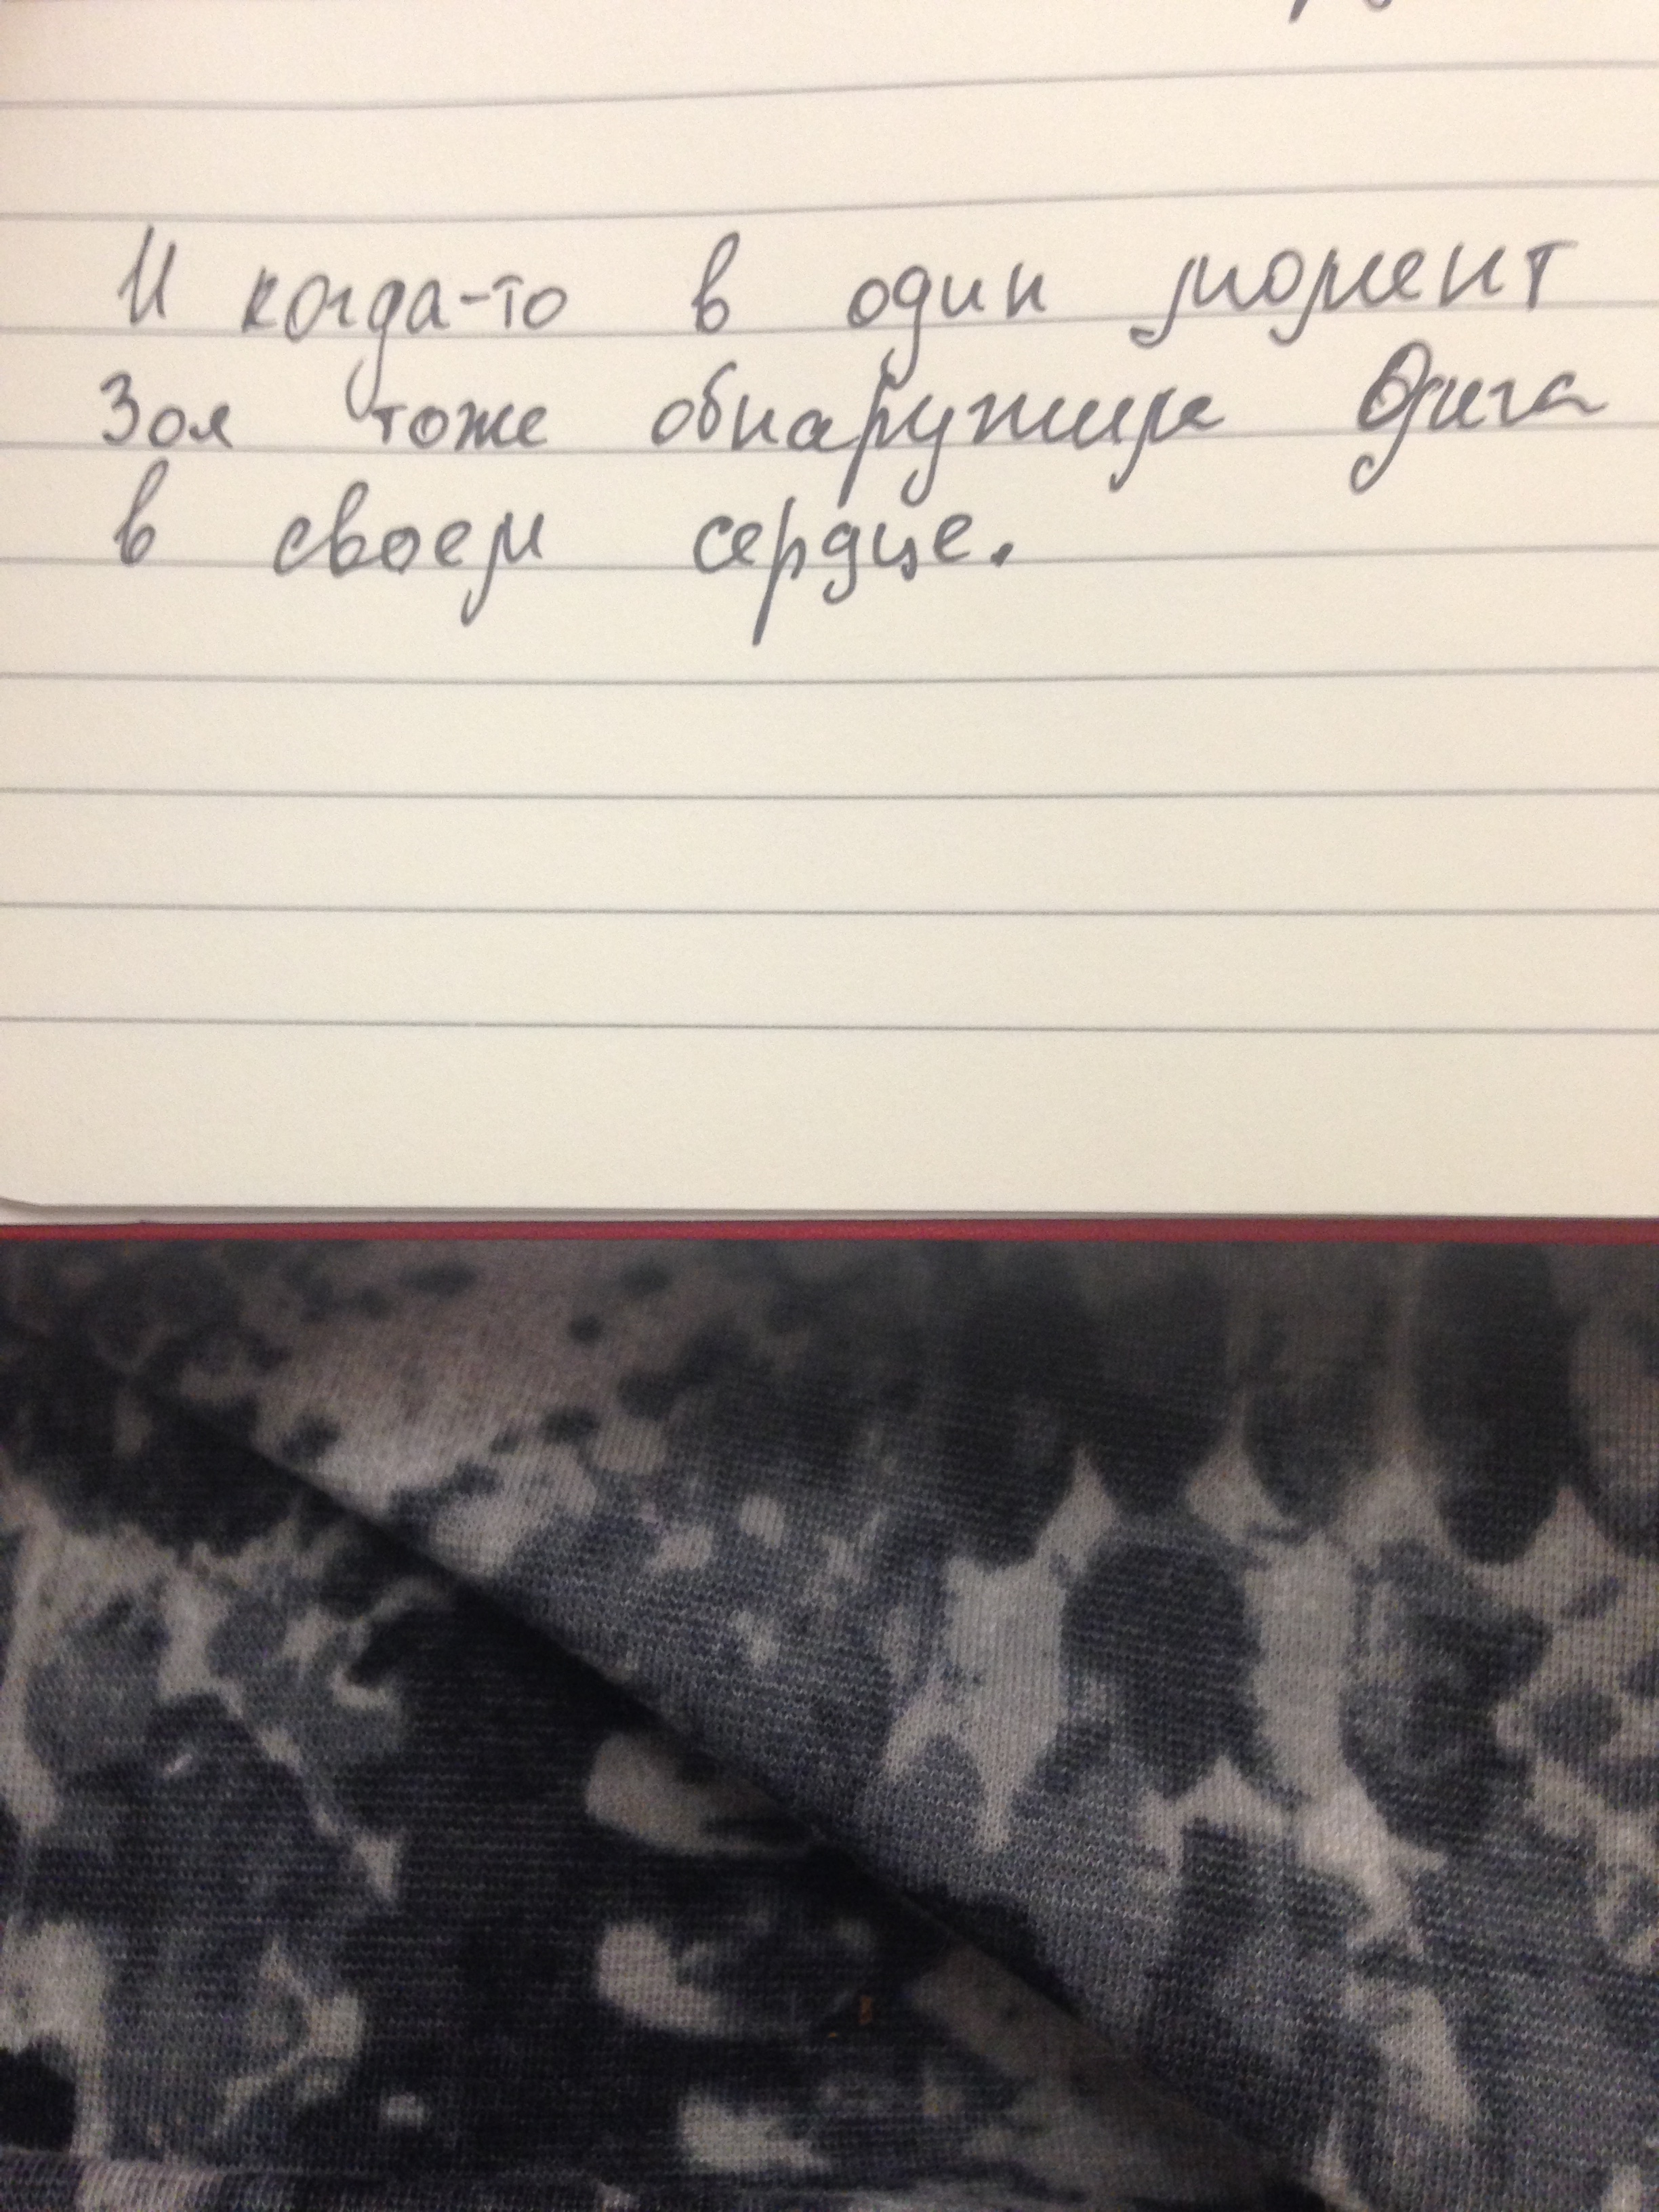 И когда-то в один момент
Зоя тоже обнаружила
в своем сердце.